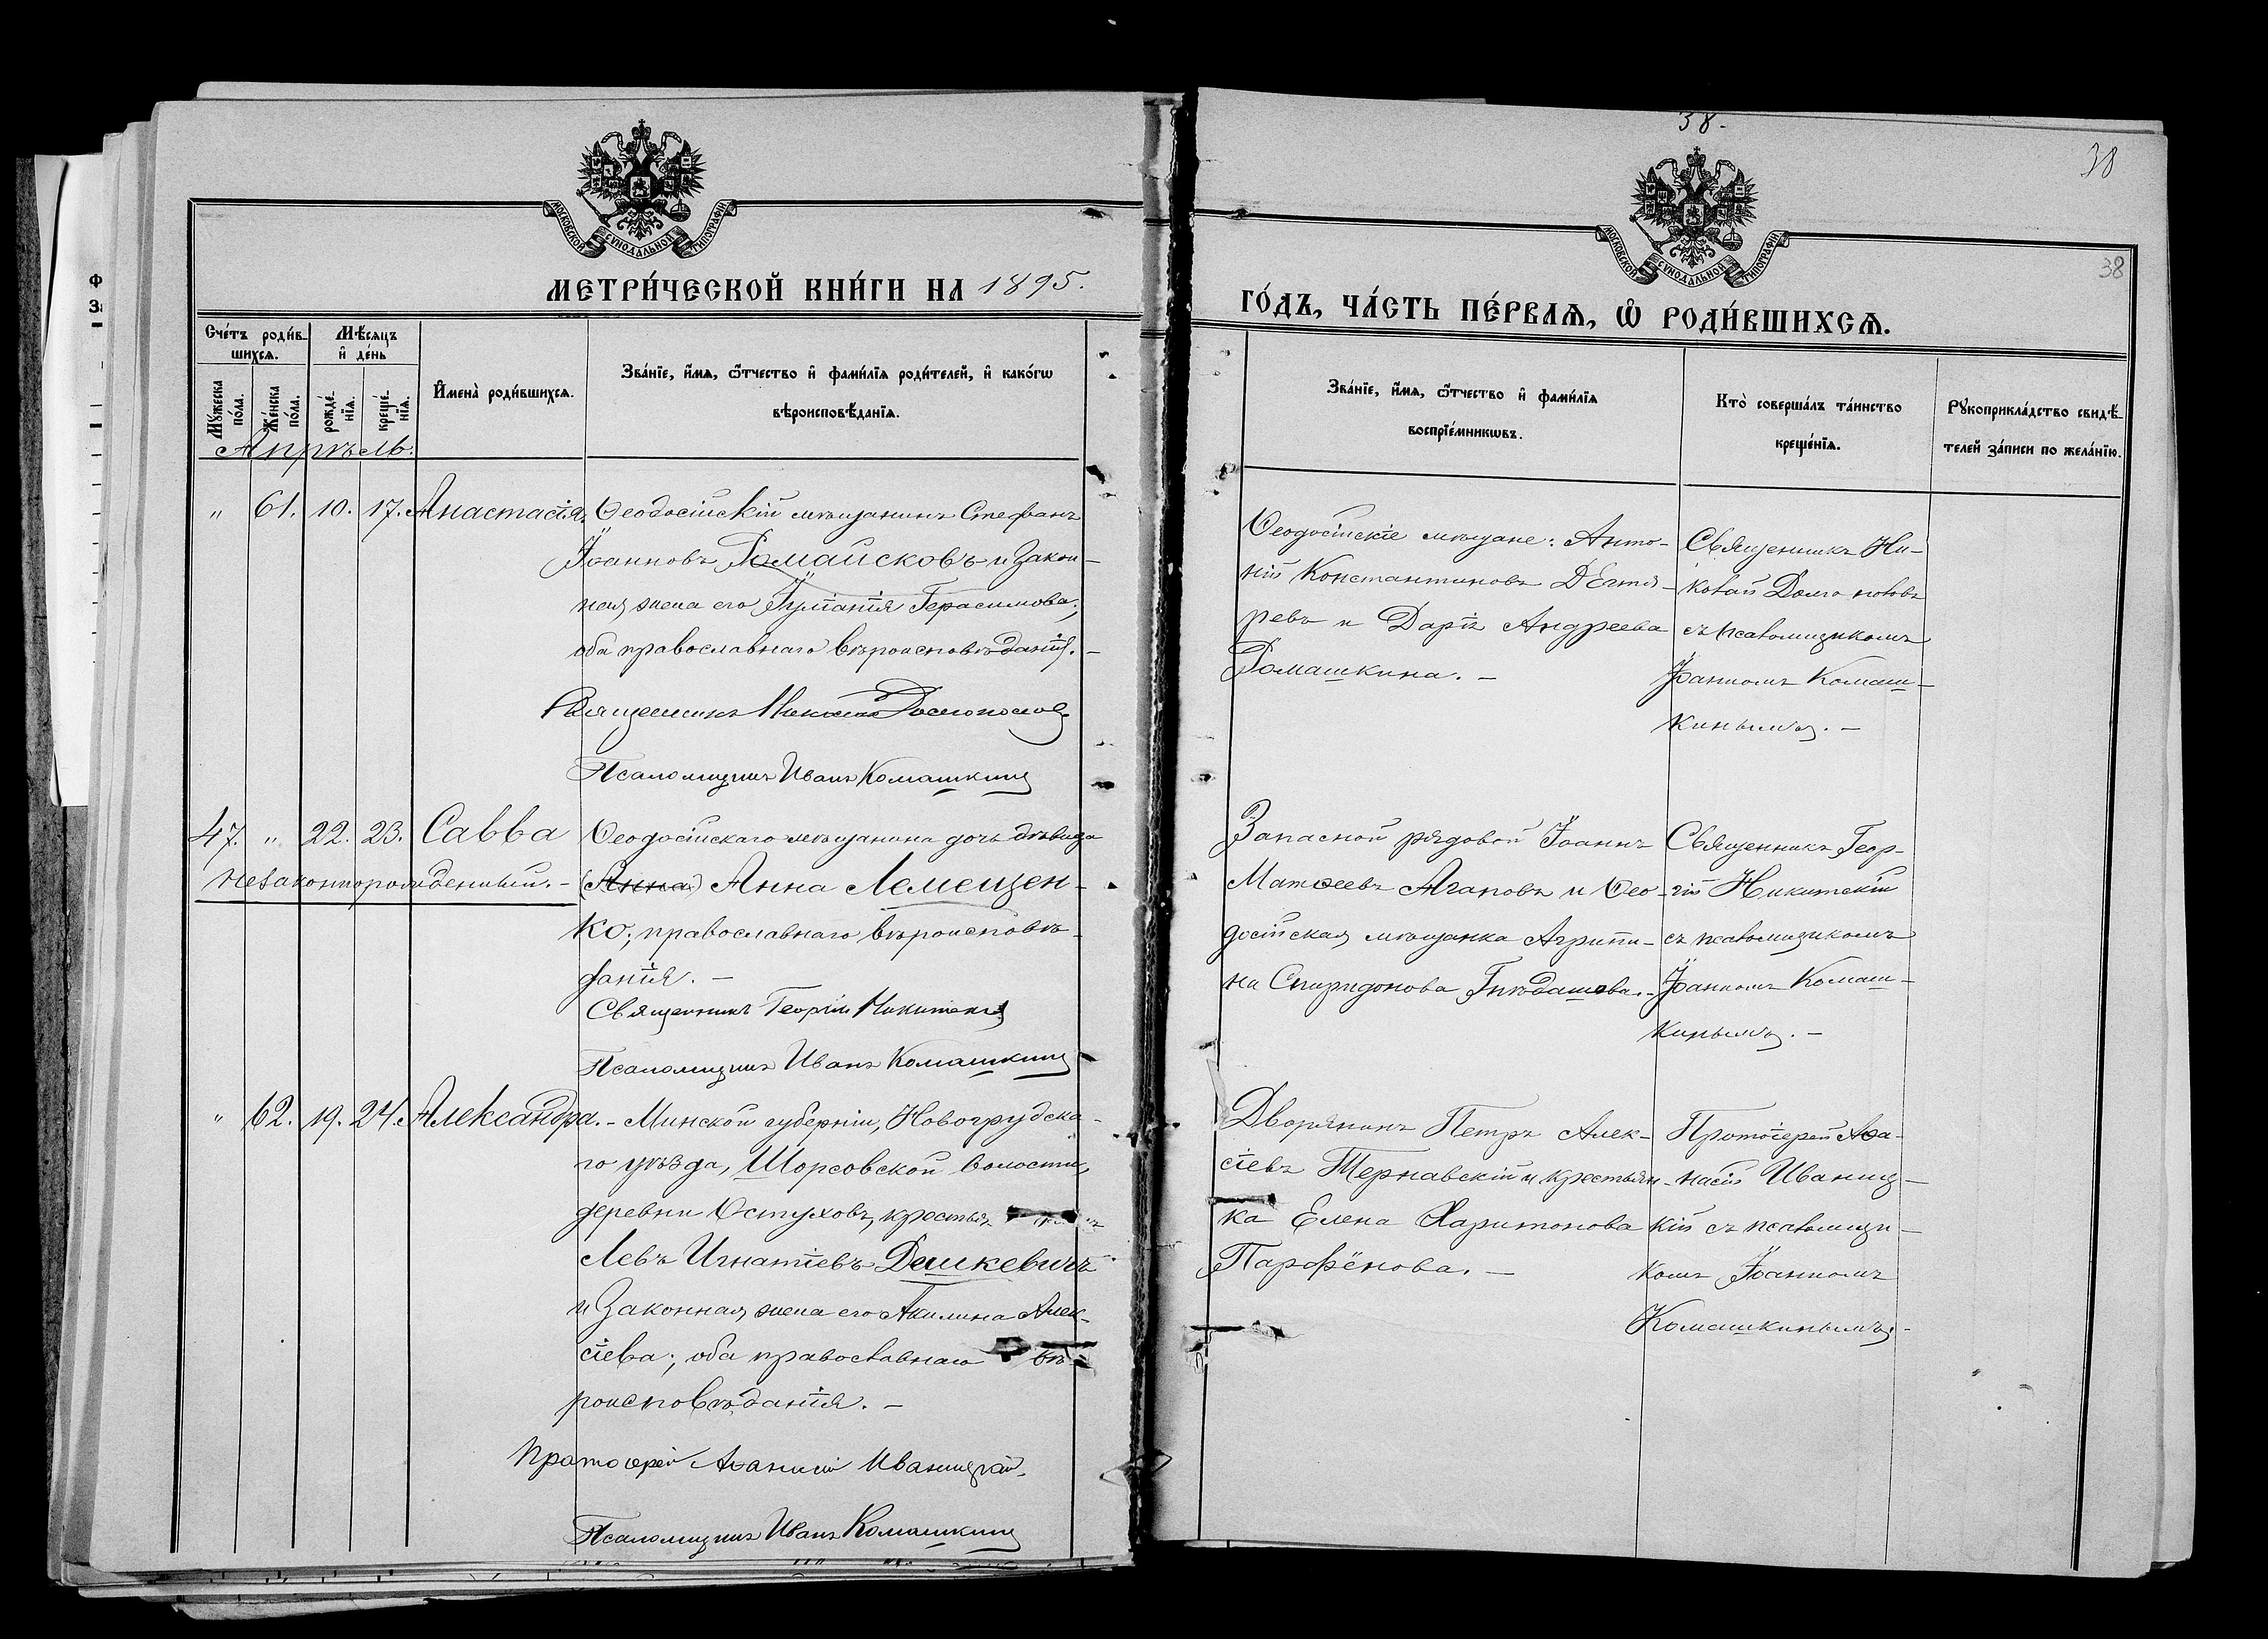 МОСКОВСКОЙ СѴНОДАЛЬНОЙ ТИПОГРАФІИ
МЕТРИ́ЧЕСКОЙ КНИ́ГИ НА 1895.
Сче́тъ роди́в-
шихсѧ.
Мѣ́сѧцъ
и҆ де́нь
Мꙋ́жеска
по́ла.
Же́нска
по́ла.
рожде́-
нїѧ.
креще́-
нїѧ.
И҆мена̀ роди́вшихсѧ.
Зва́нїе, и҆́мѧ, ѻ҆́тчество и҆ фами́лїѧ роди́телей, и҆ како́гѡ
вѣроисповѣ́данїѧ.
Апрѣль.
" 61. 10. 17. Анастасія. Ѳеодосійскій мѣщанинъ Стефанъ
Іоанновъ Домайсковъ и закон-
ная жена его Іуліанія Герасимова;
оба православнаго вѣроисповѣданія. –
Священникъ Николай Долгополовъ
Псаломщикъ Иванъ Комашкинъ
47. " 22. 23. Савва Ѳеодосійскаго мѣщанина дочь дѣвица
незаконнорожденный. – (Анна) Анна Лемещен-
ко; православнаго вѣроисповѣ-
данія. –
Священникъ Георгій Никитскій
Псаломщикъ Иванъ Комашкинъ
" 62. 19. 24. Александра. – Минской губерніи, Новогрудска-
го уѣзда, Щорсовской волости,
деревни Остуховъ, крестья
Левъ Игнатіевъ Дашкевичъ
и законная жена его Акилина Алек-
сіева; оба православнаго вѣ-
роисповѣданія. –
Протоіерей Аѳанасій Иваницкій.
Псаломщикъ Иванъ Комашкинъ
38.
38
МОСКОВСКОЙ СѴНОДАЛЬНОЙ ТИПОГРАФІИ
38
ГО́ДЪ, ЧА́СТЬ ПЕ́РВАѦ, Ѡ҆ РОДИ́ВШИХСѦ.
Зва́нїе, и҆́мѧ, ѻ҆́тчество и҆ фами́лїѧ
воспрїе́мникѡвъ.
Кто̀ соверша́лъ та́инство
креще́нїѧ.
Рꙋкоприкла́дство свидѣ́-
телей за́писи по жела́нїю.
Ѳеодосійскіе мѣщане: Анто-
ній Константиновъ Дегтя-
ревъ и Дарія Андреева
Домашкина. –
Священникъ Ни-
колай Долгополовъ
съ псаломщикомъ
Іоанномъ Комаш-
кинымъ. –
Запасной рядовой Іоаннъ
Матѳеевъ Агаповъ и Ѳео-
досійская мѣщанка Агрипи-
на Спиридонова Гнѣдашева. –
Священникъ Геор-
гій Никитскій
съ псаломщикомъ
Іоанномъ Комаш-
кинымъ. –
Дворянинъ Петръ Алек-
сіевъ Тернавскій и крестьян-
ка Елена Харитонова
Парфёнова. –
Протоіерей Аѳа-
насій Иваниц-
кій съ псаломщи-
комъ Іоанномъ
Комашкинымъ. –